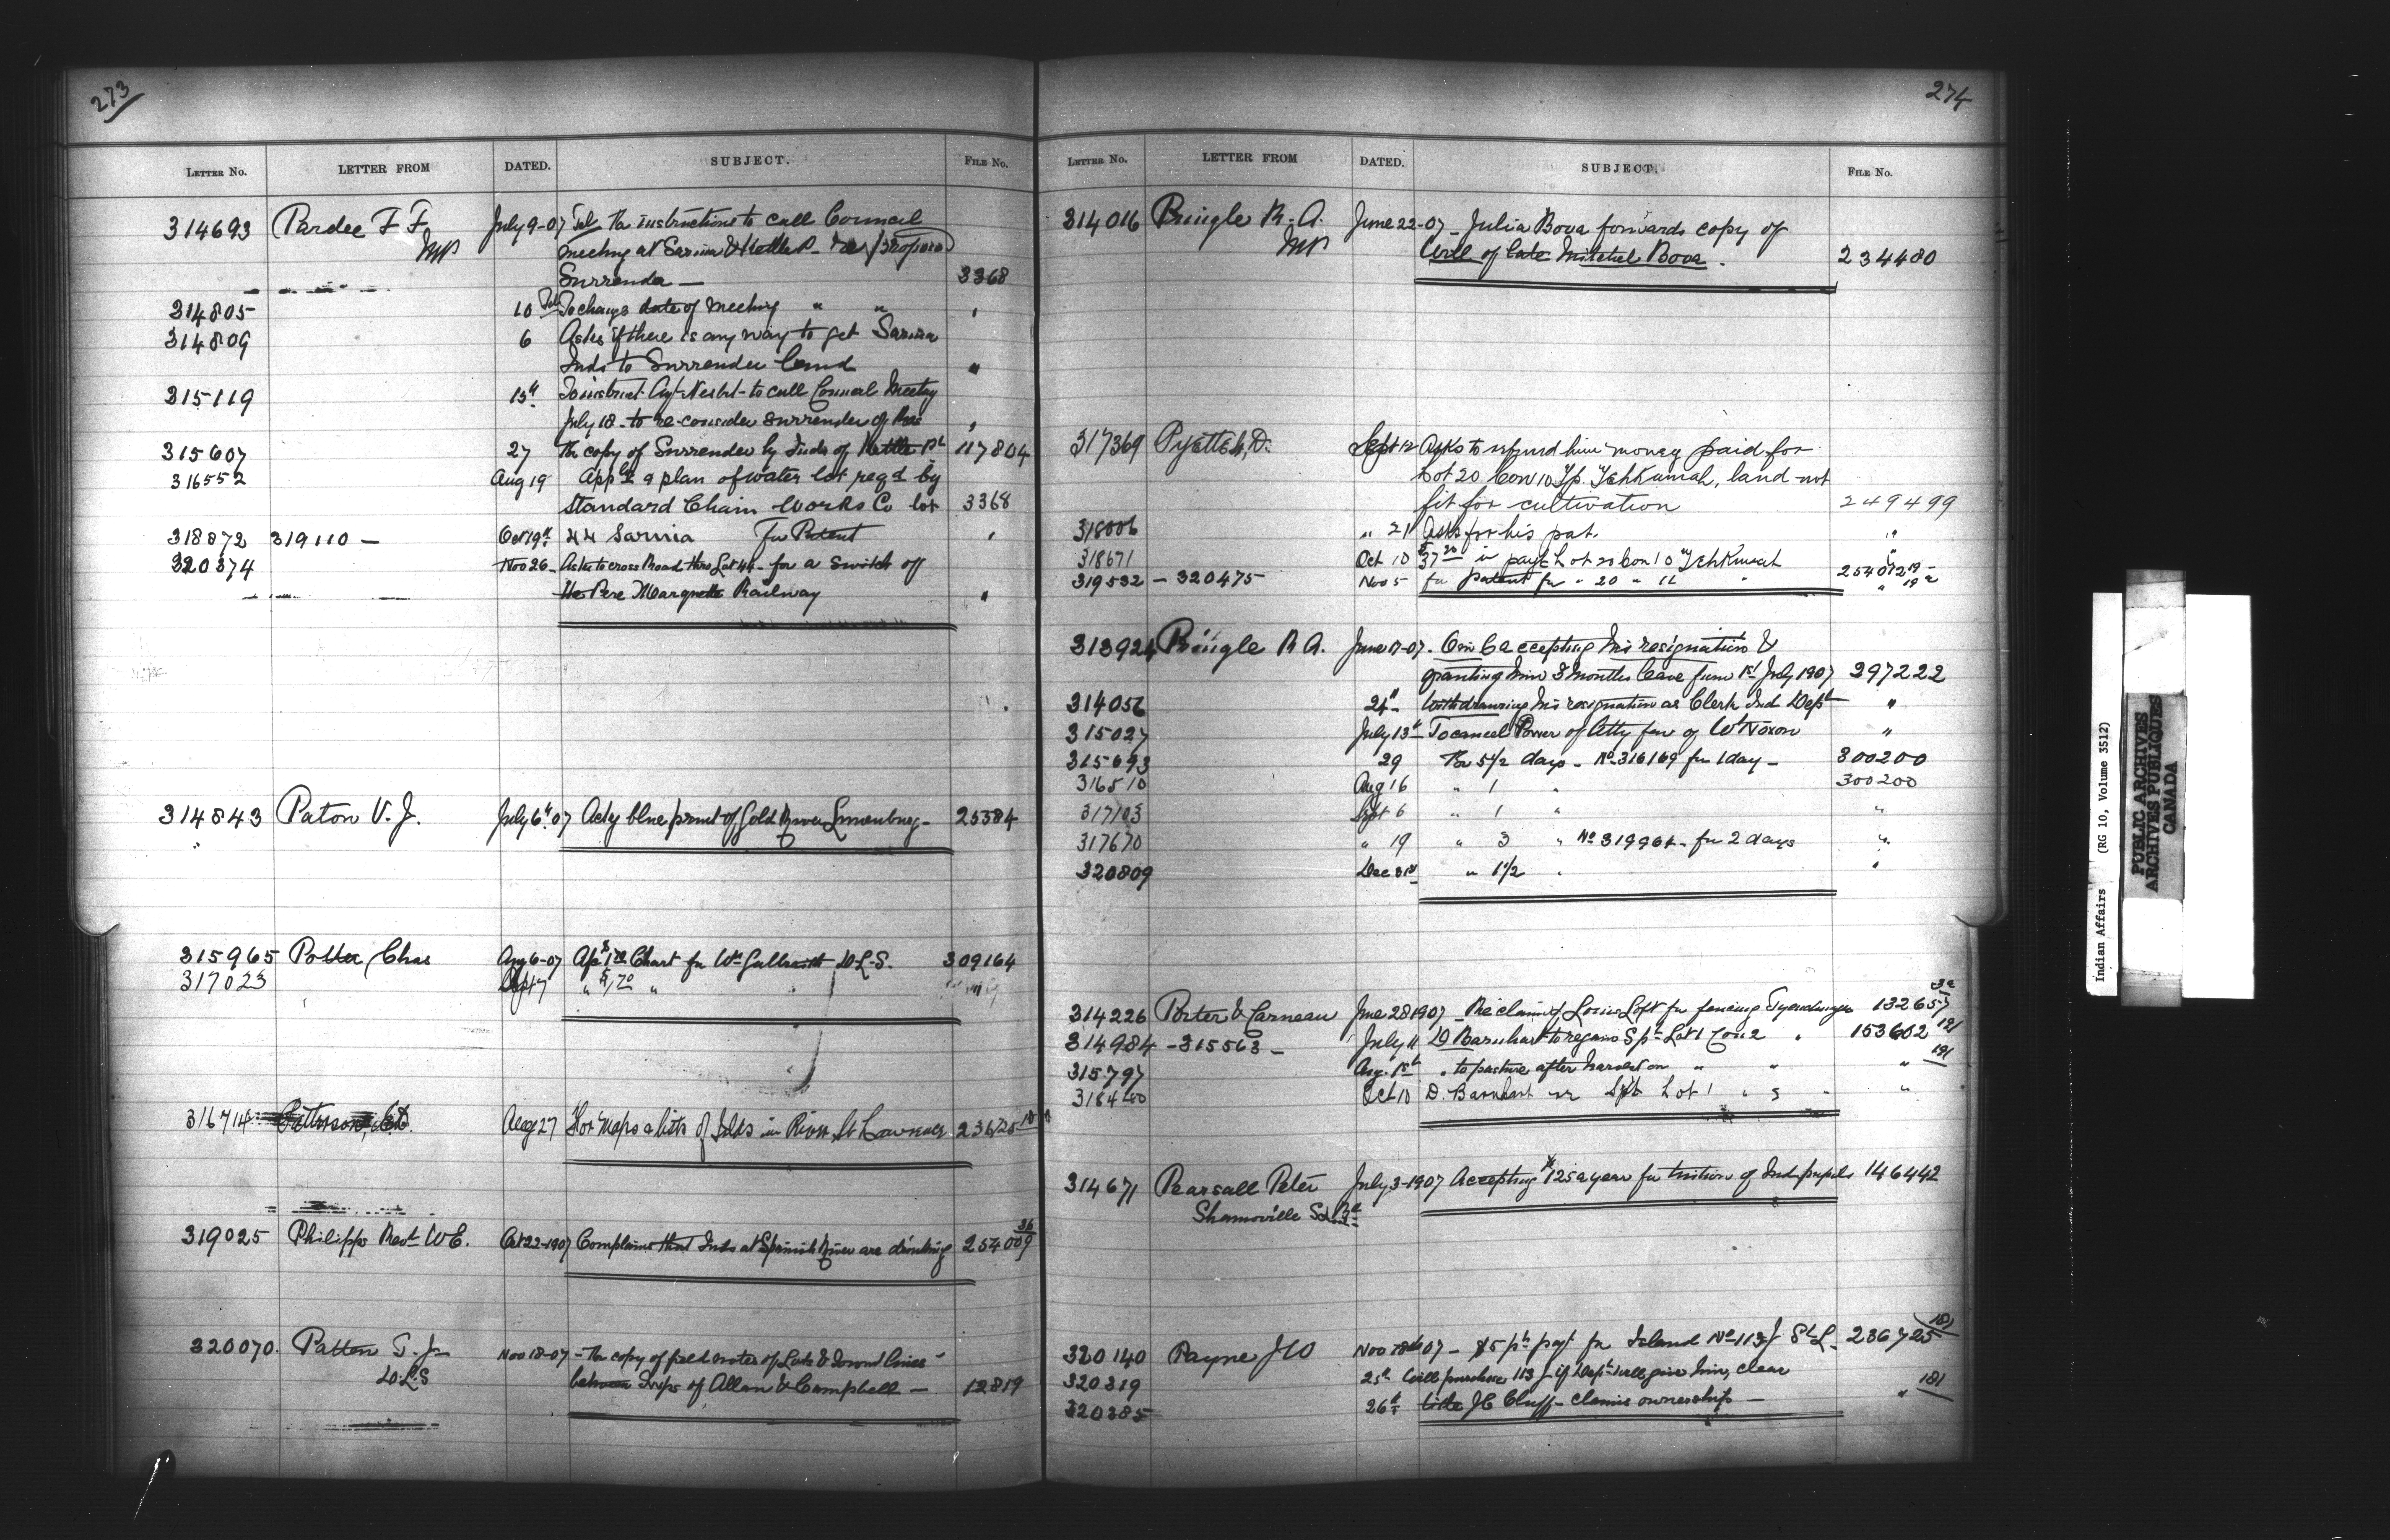 273
LETTER No. LETTER FROM DATED. SUBJECT. FILE No.
314693 Pardee F F July 9-07 Tel for instructions to call Council
MP meeting at Sarnia & Kettle P. re proposed
Surrender — 3368
314805 10 To change date of meeting " " "
314809 6 Asks if there is any way to get Sarnia
Inds to Surrender land "
315119 15th To instruct Agt Nesbit to call Council Meeting
July 18 to re-consider surrender of Res "
315607 27 for copy of Surrender by Inds of Kettle Pt 117804
316552 Aug 19 App a plan of water lot reqd by
Standard Chain Works Co lot 3368
318872 319110 — Oct 19th 44 Sarnia For Patent "
320374 Nov 26 Asks to cross Road thro Lot 44 - for a switch off
the Pere Marquette Railway "
314843 Paton V. J. July 6th 07 Ackg blue print of Gold River Lunenburg - 25384
315965 Potter Chas Aug 6-07 Chart for Wm Galbraith D.L.S. 309164
317023 Sept 7 " "
316714 Patterson, Aug 27 For maps & lists of Islds in River St Lawrence 236725
319025 Philipps Revd W E. Oct 22-1907 Complains that Inds at Spanish River are drinking 254009 36
320070. Patten T. J. Nov 18-07 - for copy of field notes of Lots & Ground lines
D.L.S between Twps of Allan & Campbell — 12819
274
LETTER No. LETTER FROM DATED. SUBJECT. FILE No.
314016 Pringle R. A. June 22-07 - Julia Bova forwards copy of
MP Will of late Mitchel Bova. 234480
317369 Pyette, D. Sept 12 Asks to refund him money paid for
Lot 20 Con 10 Tp. Tehkumah, land not
fit for cultivation 249499
318006 " 21 Asks for his pat. "
318671 Oct 10 in payt Lot 20 Con 10 Tehkumah "
319532 - 320475 Nov 5 for patent for " 20 " 11 "
313924 Pringle R A. June 17-07. O in C accepting his resignation &
granting him 3 months leave from 1st July 1907 297222
314056 24th Withdrawing his resignation as Clerk Ind Dept "
315027 July 13th To cancel Power of Atty fav of W Noxon "
315693 29 For 5 1/2 days - No 316169 for 1 day - 300200
316510 Aug 16 " 1 " 300200
317103 Sept 6 " 1 " "
317670 " 19 " 3 " No 319964 - for 2 days "
320809 Dec 31st " 1 1/2 " "
314226 Porter & Carneau June 28 1907 Re claim of Louis Loft for fencing Tyendinaga 132657
314984 - 315563 - July 11 D Barnhart to regain S pt Lot 1 Con 2 " 153602
315797 Aug. 1st " to pasture after harvest on " " "
318400 Oct 10 D. Barnhart re Lot 1 " "
314671 Pearsall Peter July 3-1907 Accepting $125 a year for tuition of Ind pupils 146442
Shannonville
320140 Payne J W Nov 07 - $5 pt payt for Island No 113 J St L. 236725 181
320319 25th Will purchase 113 J if Dept will give him clear
320385 26th title J C Cluff - claims ownership — " 181
Indian Affairs (RG 10, Volume 3512)
PUBLIC ARCHIVES
ARCHIVES PUBLIQUES
CANADA